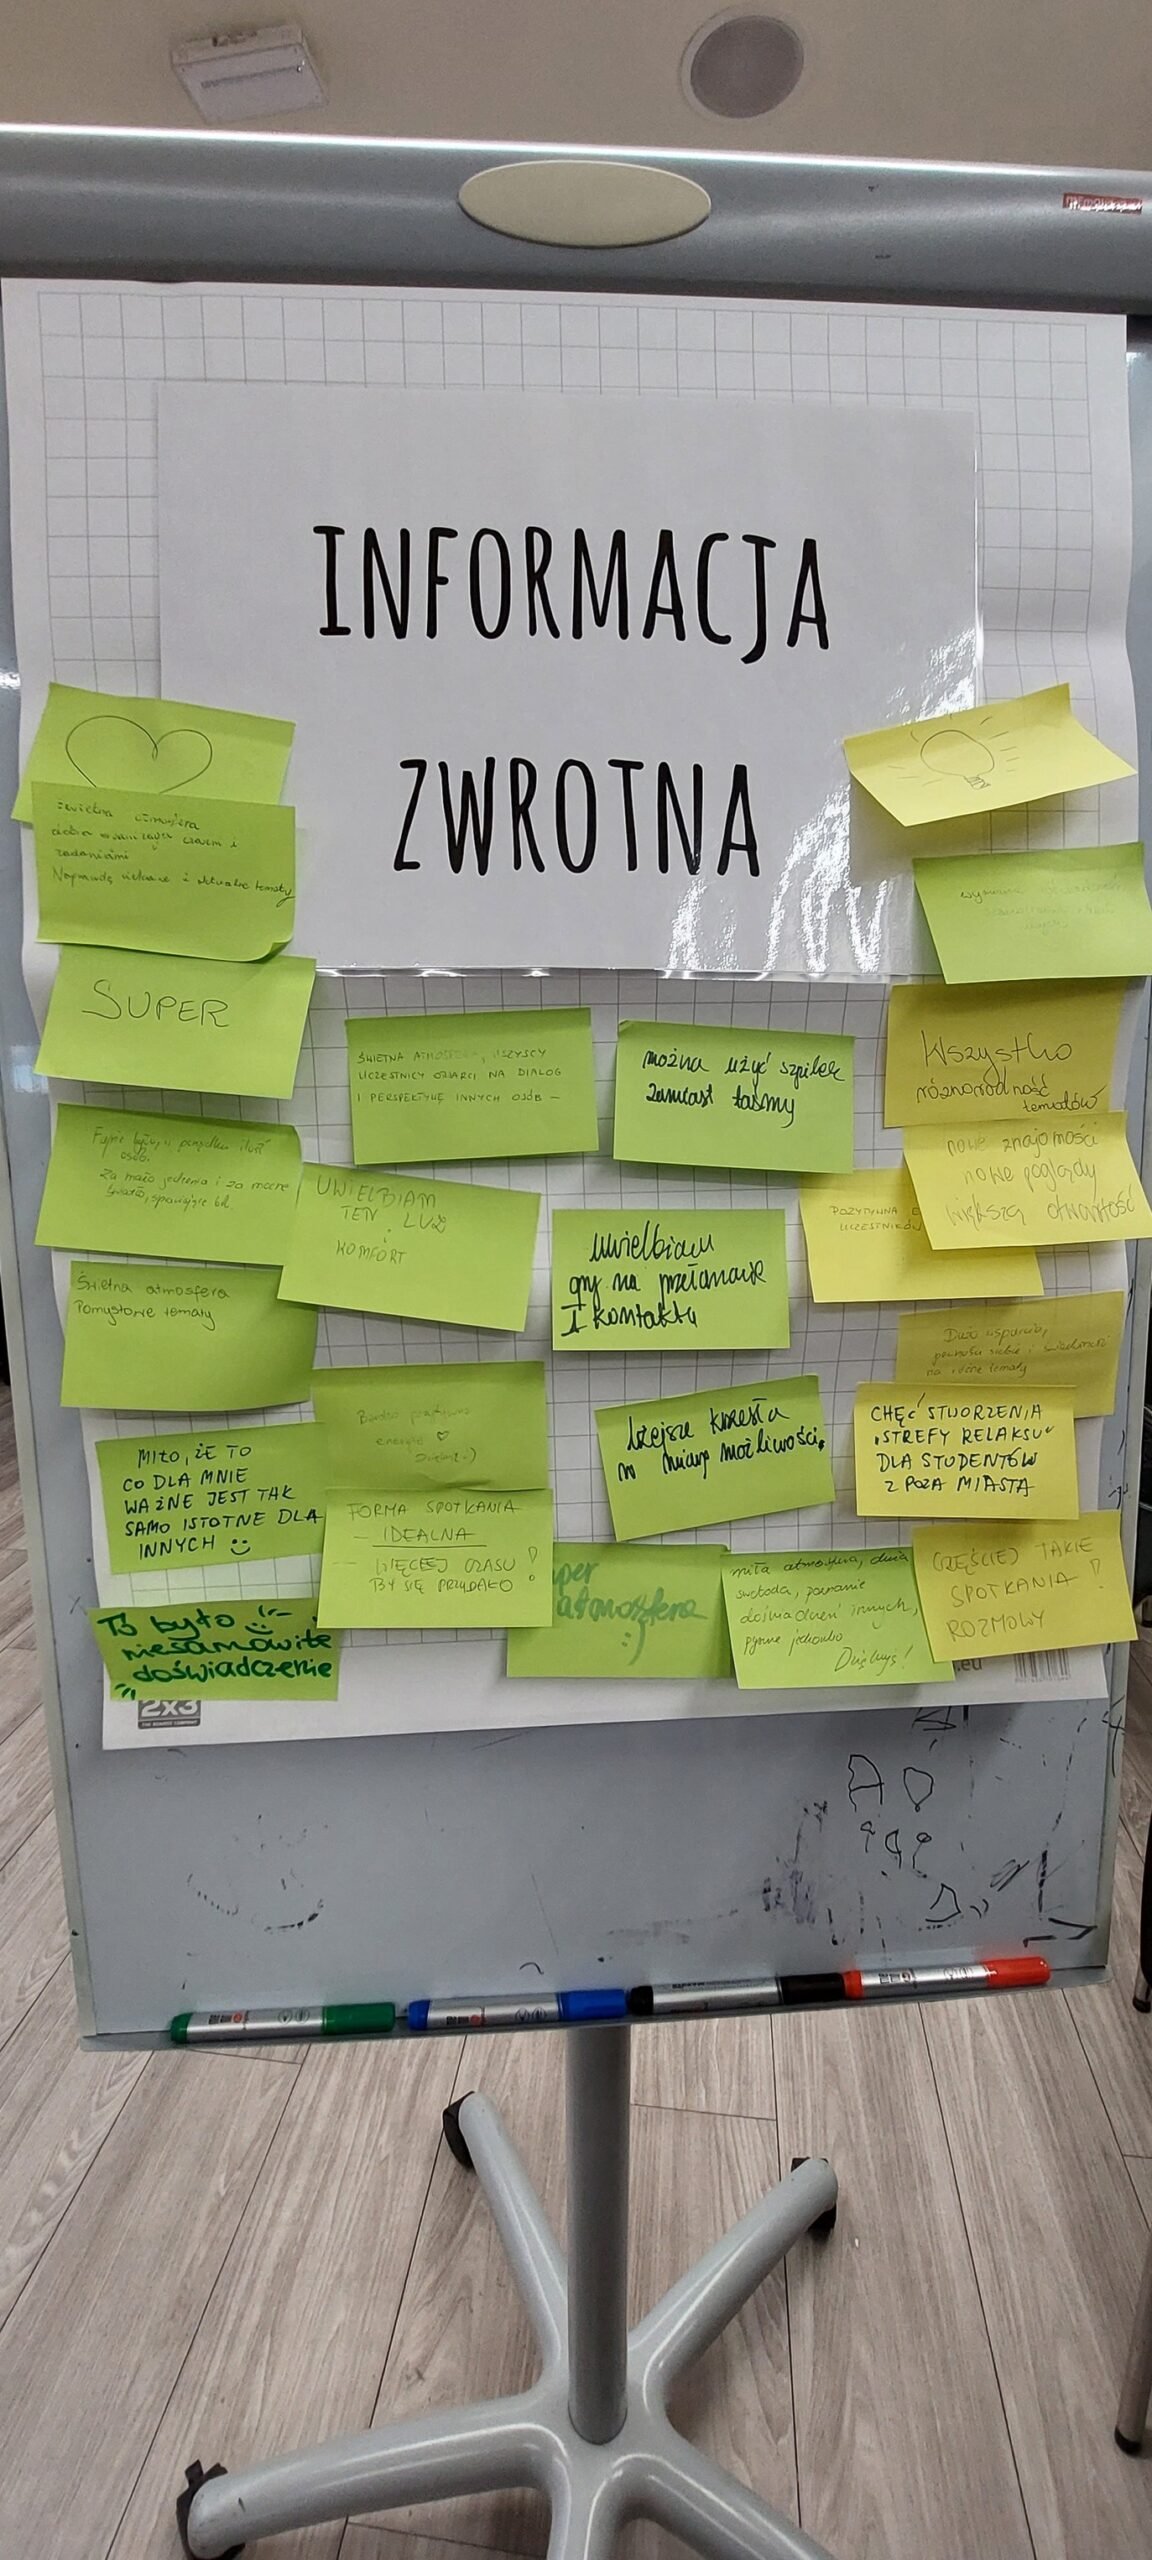 INFORMACJA
ZWROTNA
Świetna atmosfera
dobra organizacja czasu i
zadaniami
Naprawdę ciekawe i aktualne tematy
SUPER
ŚWIETNA ATMOSFERA, WSZYSCY
UCZESTNICY OTWARCI NA DIALOG
I PERSPEKTYWĘ INNYCH OSÓB —
można użyć szpilek
zamiast taśmy
Wszystko
różnorodność
tematów
nowe znajomości
nowe poglądy
większa otwartość
POZYTYWNA
UCZESTNIKÓW
Fajnie było, w porządku ilość
osób.
Za mało jedzenia i za mocne
światło,
UWIELBIAM
TEN LUZ
I
KOMFORT
Uwielbiam
gry na przełamanie
I kontaktu
Świetna atmosfera
Pomysłowe tematy
Dużo wsparcia,
na różne tematy
Bardzo pozytywna
energia ♡
lżejsze krzesła
w miarę możliwości.
CHĘĆ STWORZENIA
„STREFY RELAKSU"
DLA STUDENTÓW
Z POZA MIASTA
MIŁO, ŻE TO
CO DLA MNIE
WAŻNE JEST TAK
SAMO ISTOTNE DLA
INNYCH :)
FORMA SPOTKANIA
— IDEALNA
— WIĘCEJ CZASU
BY SIĘ PRZYDAŁO !
To było
niesamowite
doświadczenie
per
atmosfera
:)
miła atmosfera, duża
swoboda, poznanie
doświadczeń innych,
pyszne jedzonko
Dziękuję!
CZĘŚCIEJ TAKIE
SPOTKANIA !
ROZMOWY
.eu
2x3